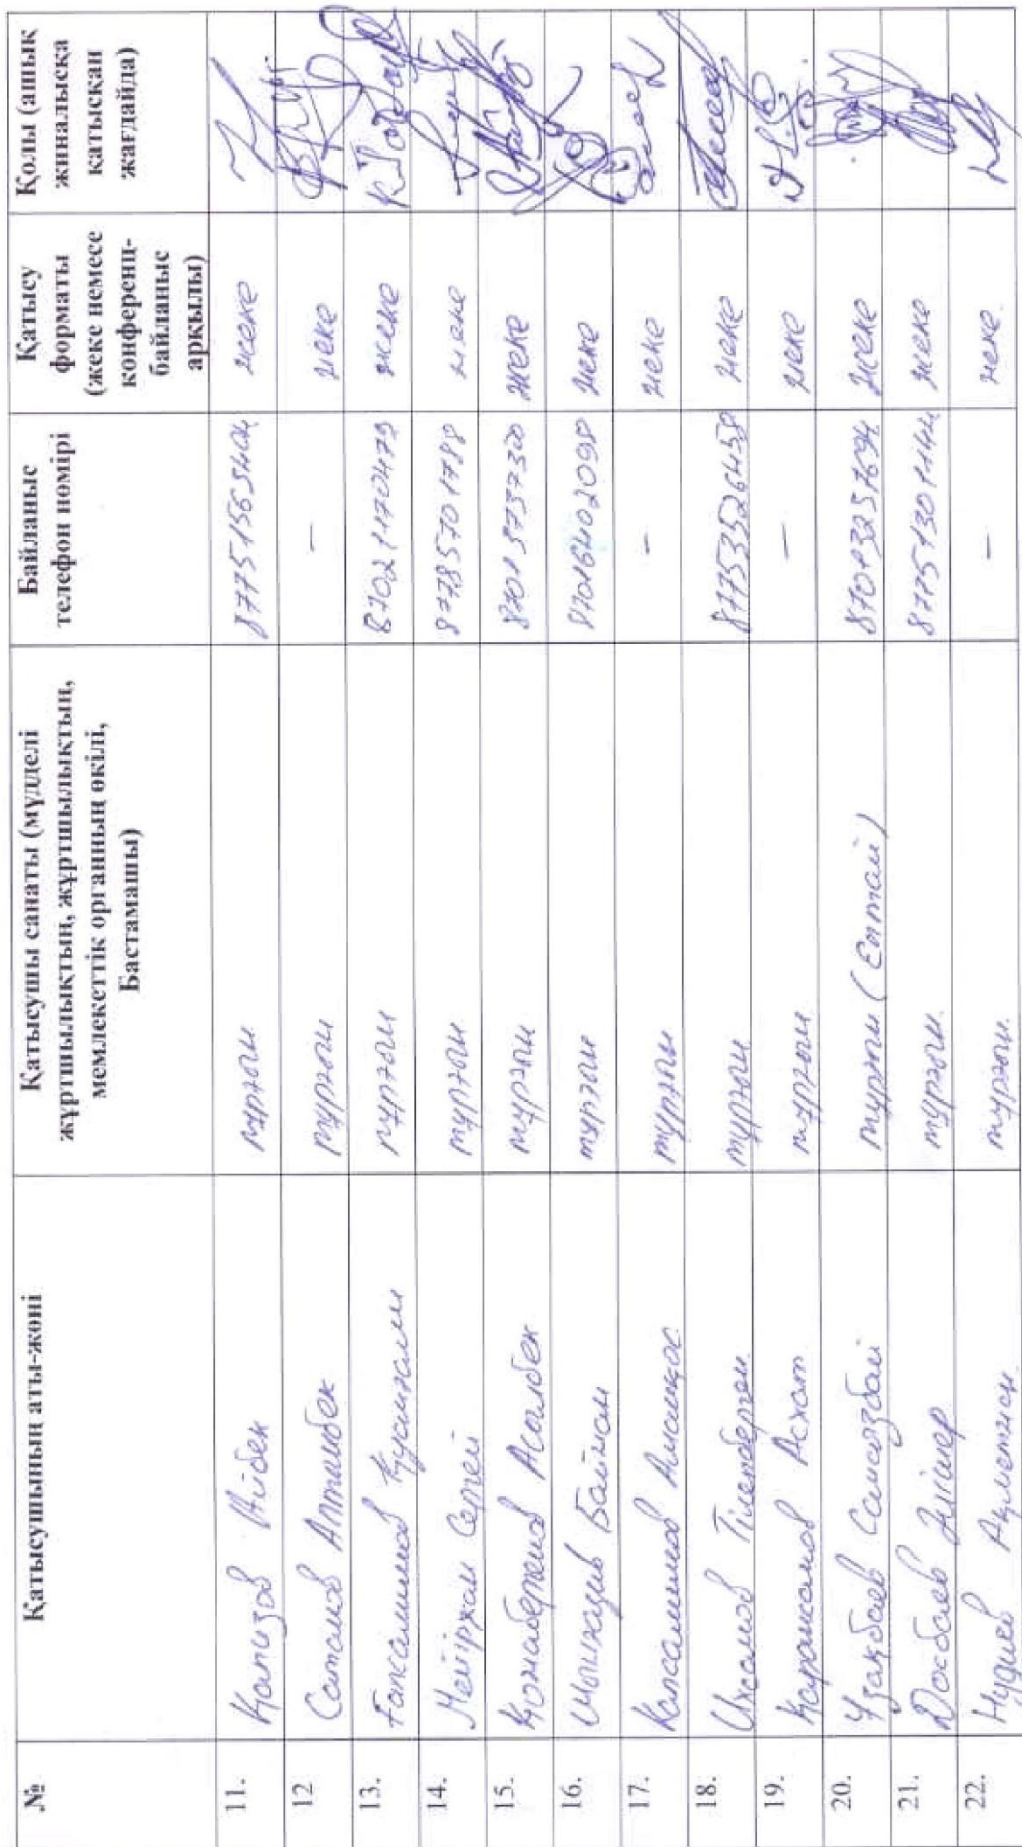 № Қатысушының аты-жөні Қатысушы санаты (мүдделі жұртшылықтың, жұртшылықтың, мемлекеттік органның өкілі, Бастамашы) Байланыс телефон нөмірі Қатысу форматы (жеке немесе конференц-байланыс арқылы) Қолы (ашық жиналысқа қатысқан жағдайда)
11. Капизов Айбек тұрғын 87751565404 жеке
12 Сатанов Алтынбек тұрғын – жеке
13. Гапсалимов Қуанғали тұрғын 87021170479 жеке
14. Мейіржан Сергей тұрғын 87785701788 жеке
15. Қонабергенов Асылбек тұрғын 87013737320 жеке
16. Байжан тұрғын 87016402098 жеке
17. Капсалимов Аманқос тұрғын – жеке
18. Ихсанов Тілеберген тұрғын 87753526458 жеке
19. Карамсаков Асхат тұрғын – жеке
20. Ұзақбаев тұрғын (Ектай) 87013257694 жеке
21. Досбаев тұрғын 87751301144 жеке
22. тұрғын – жеке